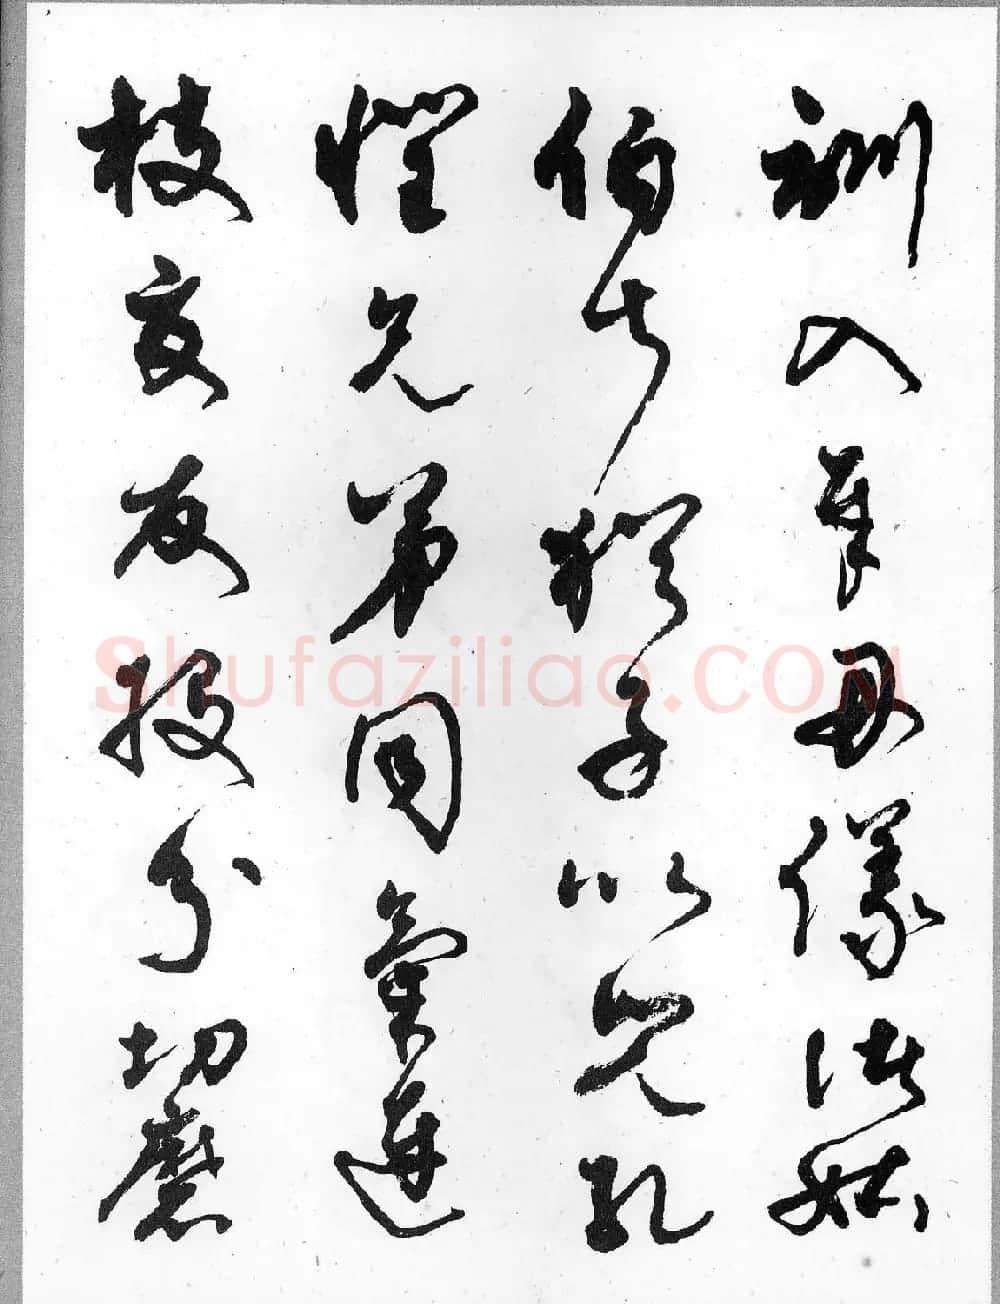 訓入奉母儀諸姑
伯叔猶子比兒孔
懷兄弟同氣連
枝交友投分切磨
Shufaziliao.COM